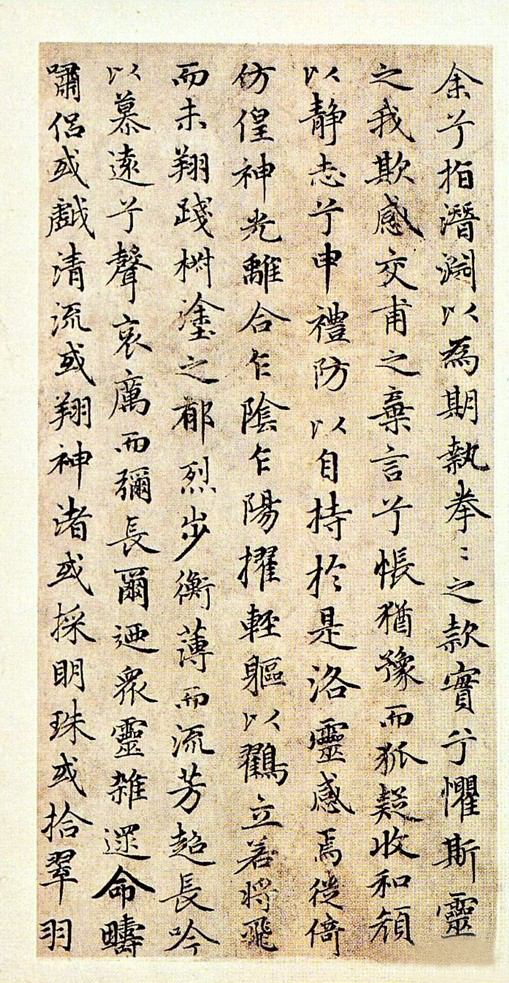 余兮指潛淵以為期執拳〻之款實兮懼斯靈
之我欺感交甫之棄言兮悵猶豫而狐疑收和顏
以靜志兮申禮防以自持於是洛靈感焉徙倚
仿偟神光離合乍陰乍陽擢輕軀以鸖立若將飛
而未翔踐椒塗之郁烈步衡薄而流芳超長吟
以慕遠兮聲哀厲而彌長爾迺眾靈雜遝命疇
嘯侶或戲清流或翔神渚或採明珠或拾翠羽